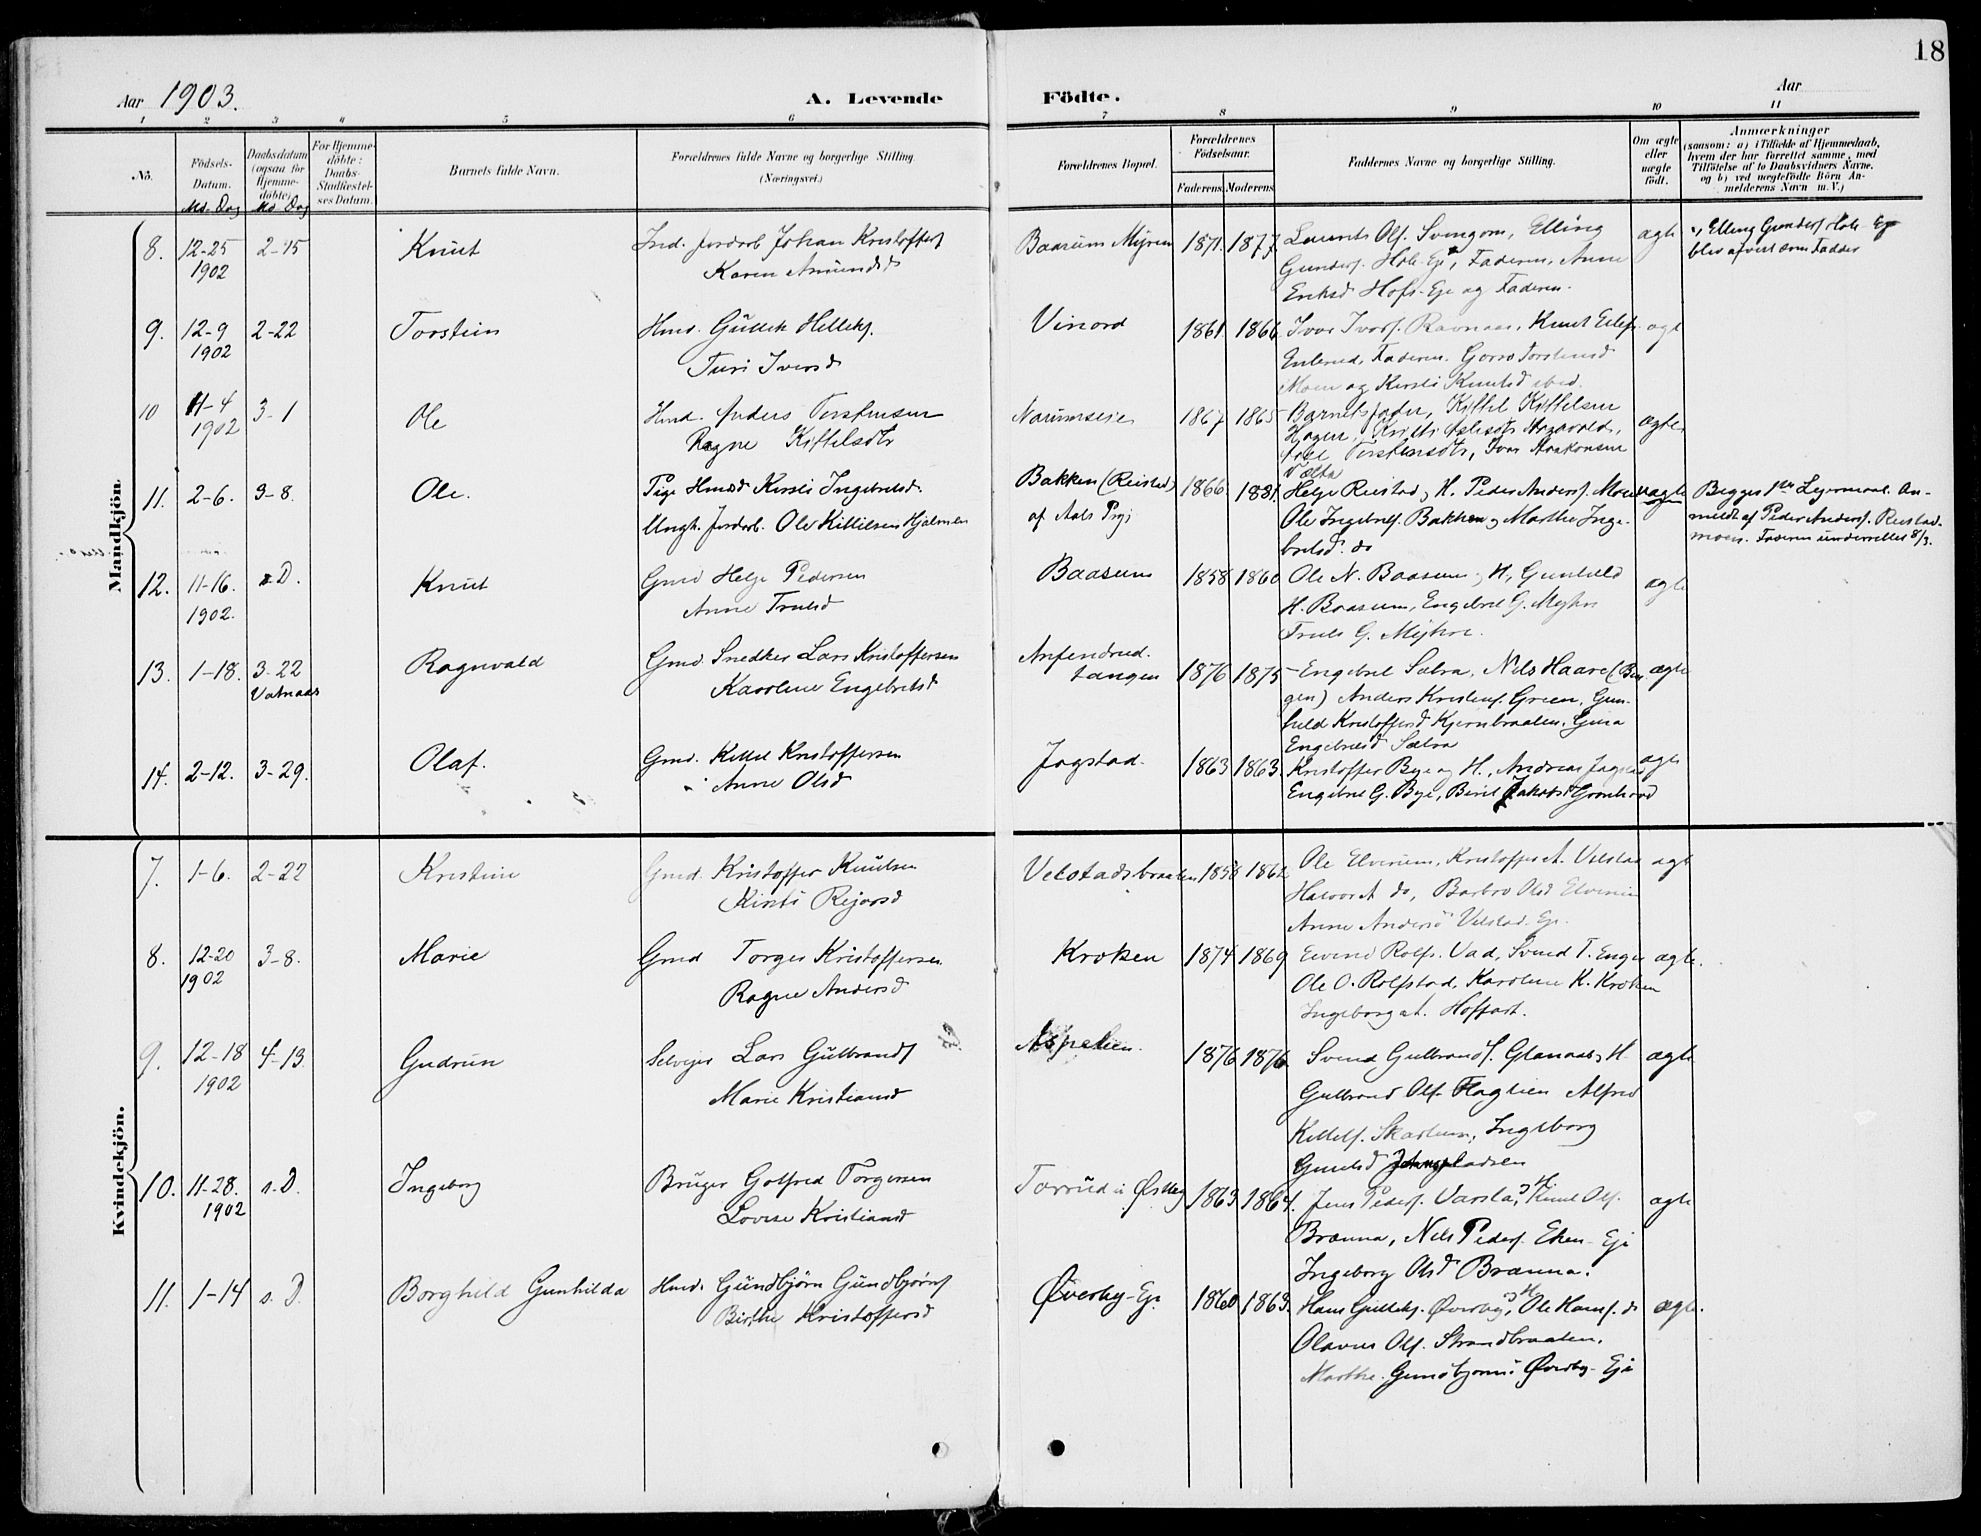 18
Aar 1903.
A. Levende Födte.
Aar
1 2 3 4 5 6 7 8 9 10 11
No.
Födsels-Datum.
Md. Dag
Daabsdatum (ogsaa for Hjemme-döbte)
Md Dag
For Hjemme-döbte: Daabs-Stadfæstel-ses Datum.
Barnets fulde Navn.
Forældrenes fulde Navne og borgerlige Stilling.
(Næringsvei.)
Forældrenes Bopæl.
Forældrenes Födselsaar.
Faderens. Moderens.
Faddernes Navne og borgerlige Stilling.
Om ægte eller uægte födt.
Anmærkninger
(saasom: a) i Tilfælde af Hjemmedaab,
hvem der har forrettet samme, med
Tilföielse af to Daabsvidners Navne.
og b) ved uægtefödte Börn An-
melderens Navn m.V.)
Mandkjön
8. 12-25 1902 2-15 Knut
Ind. Jordarb Johan Kristoffers
Karen Amundsd
Baarum Myren 1871. 1877.
Laurits Ols. Svingom, Elling
Gunders. Hole-Eje, Faderen, Anne
Eriksd Hofs-Eje og Faderen.
ægte
Elling Gunders Hole-Eje
blev afvist som Fadder
9. 12-9 1902 2-22 Torstein
Hmd. Gullik Helleks.
Turi Iversd
Vinord 1861. 1866
Ivar Ivars. Ravnaas, Knut Eilefs.
Enlerud, Faderen. Gorro Torstensd
Moen og Kirsti Knutsd ibid.
ægte
10 11-4 1902 3-1 Ole
Hmd. Anders Torstensen
Ragne Kittelsdtr
Narumseie 1867 1865
Barnets fader, Kittel Kittelsen
Hagen,
Torstensdtr, Ivar Haakonsen
ægte
11. 2-6. 3-8. Ole.
Pige Hmdsd Kirsti Ingebretsd.
Ungk. Jordarb. Ole Kittilsen Hjalmen
Bakken (Reistad)
af Aals Prgj
1866. 1881.
Helge Reistad og H. Peder Anders. Moen
Ole Ingebrets. Bakken og Marthe Inge-
bretsd. do
uægte
Begges 1ste Leiermaal. An-
meldt af Peder Anders. Reistad-
moen. Faderen underrettet 8/3.
12. 11-16. 1902. s.D. Knut
Gmd Helge Pedersen
Anne Trulsd
Baasum 1858 1860
Ole N. Baasum og H., Gunhild
H. Baasum, Engebret G. Myhre
Truls G. Myhre.
ægte
13. 1-18. 3-22 Vatnaas Ragnvald
Gmd. Snedker Lars Kristoffersen
Karoline Engebretsd
Anfendrud.
tangen
1876 1875
Engebret Sælra, Nils Haare (Ben
gen) Anders Kristens. Green, Gun-
hild Kristoffersd Kjernbraaten, Gina
Engebretsd Sælra
ægte
14. 2-12. 3-29. Olaf.
Gmd. Kittil Kristoffersen
Anne Olsd
Jogstad. 1863 1863.
Kristoffer Bye og H., Andreas Jogstad
Engebret G. Bye, Berit Jakobsd Grønhovd
ægte
Kvindekjön.
7. 1-6. 2-22 Kristine
Gmd. Kristoffer Knutsen
Kirsti Rejarsd
Velstadsbraaten 1858 1862
Ole Elverum, Kristoffer A. Velstad
Halvor A do, Barbro Olsd Elverum
Anne Andersd Velstad. Eje.
ægte
8. 12-20 1902 3-8. Marie
Gmd Torger Kristoffersen
Ragne Andersd
Kroken 1874 1869
Eivind Rolfs. Vad, Svend T. Enger
Ole O. Rolfstad, Karoline K. Kroken
Ingeborg A. Hoffart.
ægte.
9. 12-18 1902 4-13. Gudrun
Selvejer Lars Gulbrands
Marie Kristiansd
Aspelien. 1876 1876
Svend Gulbrands. Glanaas og H
Gulbrand Ols. Haglien Alfred
Kittels. Skartum, Ingeborg
Gunulsd
ægte
10. 11-28. 1902 s.D. Ingeborg
Bruger Golfred Torgersen
Lovise Kristiansd
Tørrud i Østby 1863 1864.
Jens Peders. Varsla og H. Knut Ols.
Brænna, Nils Peders. Eken-Eje
Ingeborg Olsd Brænna.
ægte
11. 1-14 s.D. Borghild Gunhilda
Hmd. Gundbjørn Gundbjørns
Birthe Kristoffersd
Øverby-Eje 1860 1863.
Hans Gulleks. Øverby og H., Ole Hans. do
Olavus Ols. Strandbraaten.
Marthe Gundbjørnsd Øverby-Eje
ægte.